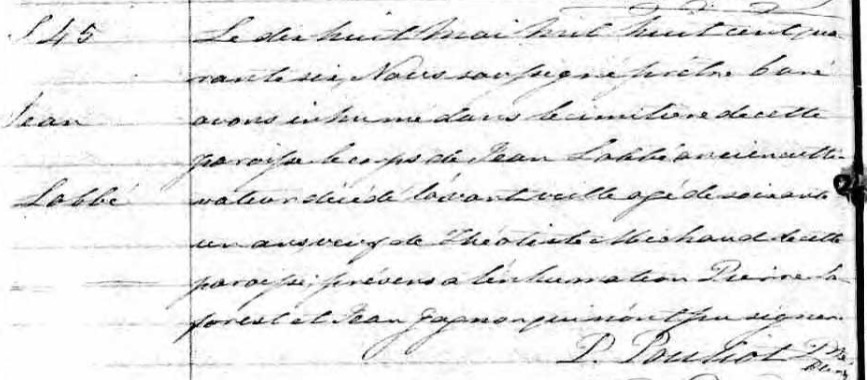 S 45
Jean
Labbé
Le dix huit Mai mil huit cent qua
rante six, Nous soussigné prêtre Curé
avons inhumé dans le cimetière de cette
paroisse le corps de Jean Labbé ancien culti
vateur décédé l'avant veille agé de soixante
un ans, veuf de Théotiste Michaud de cette
paroisse; présens a l'inhumation Pierre la
forest et Jean Gagnon qui n'ont pu signer
P. Pouliot Ptre